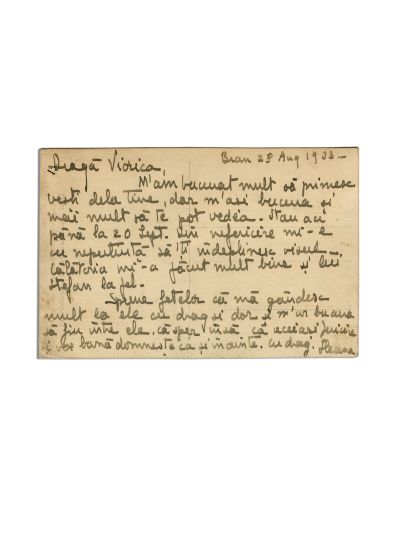 Bran 29 Aug 1933 —
Dragă Viorica,
M'am bucurat mult să primesc
vești dela tine, dar m'ași bucura și
mai mult să te pot vedea. Stau aci
până la 20 Sept. din nefericire mi-e
cu neputință să'ți îndeplinesc visul.
Călătoria mi-a făcut mult bine și lui
Ștefan la fel.
Spune fetelor că mă gândesc
mult la ele cu drag și dor și m'ar bucura
să fiu între ele, că sper însă că aceiași
și voe bună domnește ca și înainte. Cu drag. Ileana